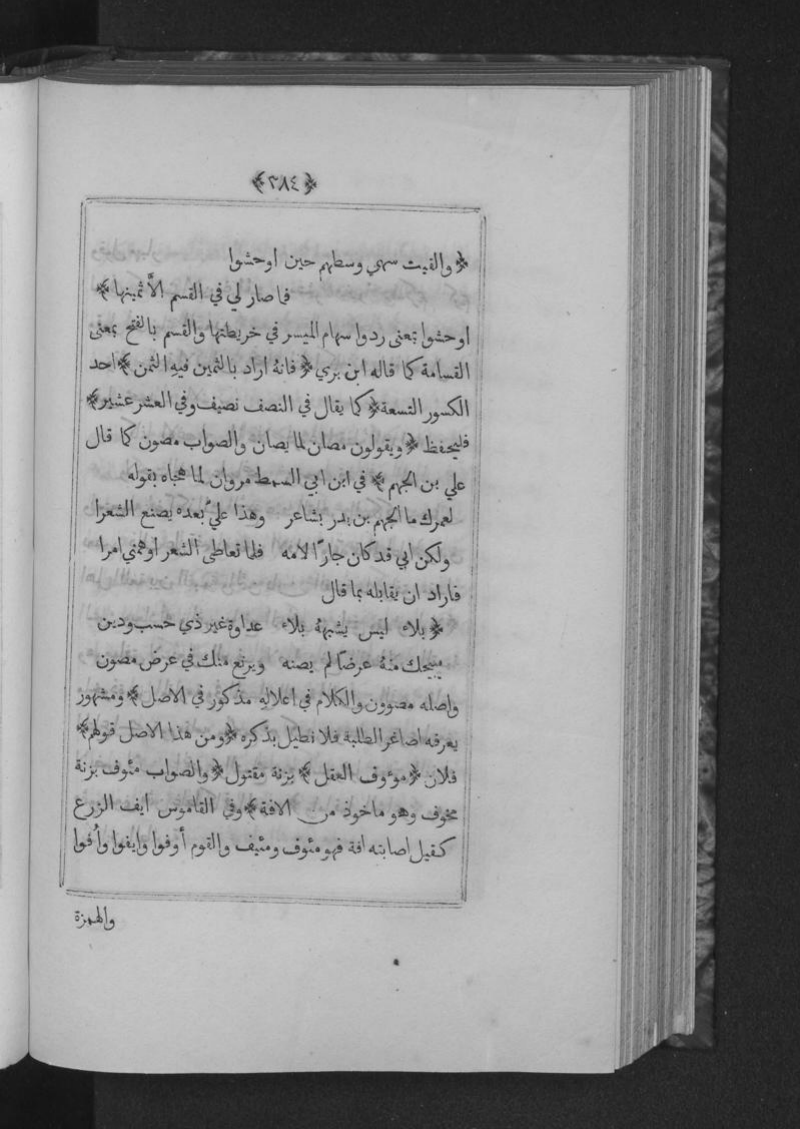 ﴿٣٨٤﴾
﴿والقيت سهمي وسطهم حين اوحشوا
فما صار لي في القسم الاَّ ثمينها﴾
اوحشوا بمعنى ردوا سهام الميسر في خريطتها والقسم بالفتح بمعنى
القسامة كما قاله ابن بري ﴿فانهُ اراد بالثمين فيهِ الثمن﴾ احد
الكسور التسعة ﴿كما يقال في النصف نصيف وفي العشر عشير﴾
فليحفظ ﴿ويقولون مصان لما يصان والصواب مصون كما قال
علي بن الجهم﴾ في ابن ابي السمط مروان لما هجاه بقوله
لعمرك ما الجهم بن بدر بشاعر وهذا عليٌ بعده يصنع الشعرا
ولكن ابي قد كان جارًا لامه فلما تعاطى الشعر اوهمني امرا
فاراد ان يقابله بما قال
﴿بلاء ليس يشبههُ بلاء عداوة غير ذي حسب ودين
يبيحك منهُ عرضًا لم يصنه ويرتع منك في عرض مصون
واصله مصوون والكلام في اعلاله مذكور في الاصل﴾ ومشهور
يعرفه اصاغر الطلبة فلا نطيل بذكره ﴿ومن هذا الاصل قولهم﴾
فلان ﴿موءوف العقل﴾ بزنة مقتول ﴿والصواب مئوف بزنة
مخوف وهو ماخوذ من الافة﴾ وفي القاموس ايف الزرع
كقيل اصابته افة فهو مئوف ومئيف والقوم أوفوا وايفوا واُفوا
والهمزة